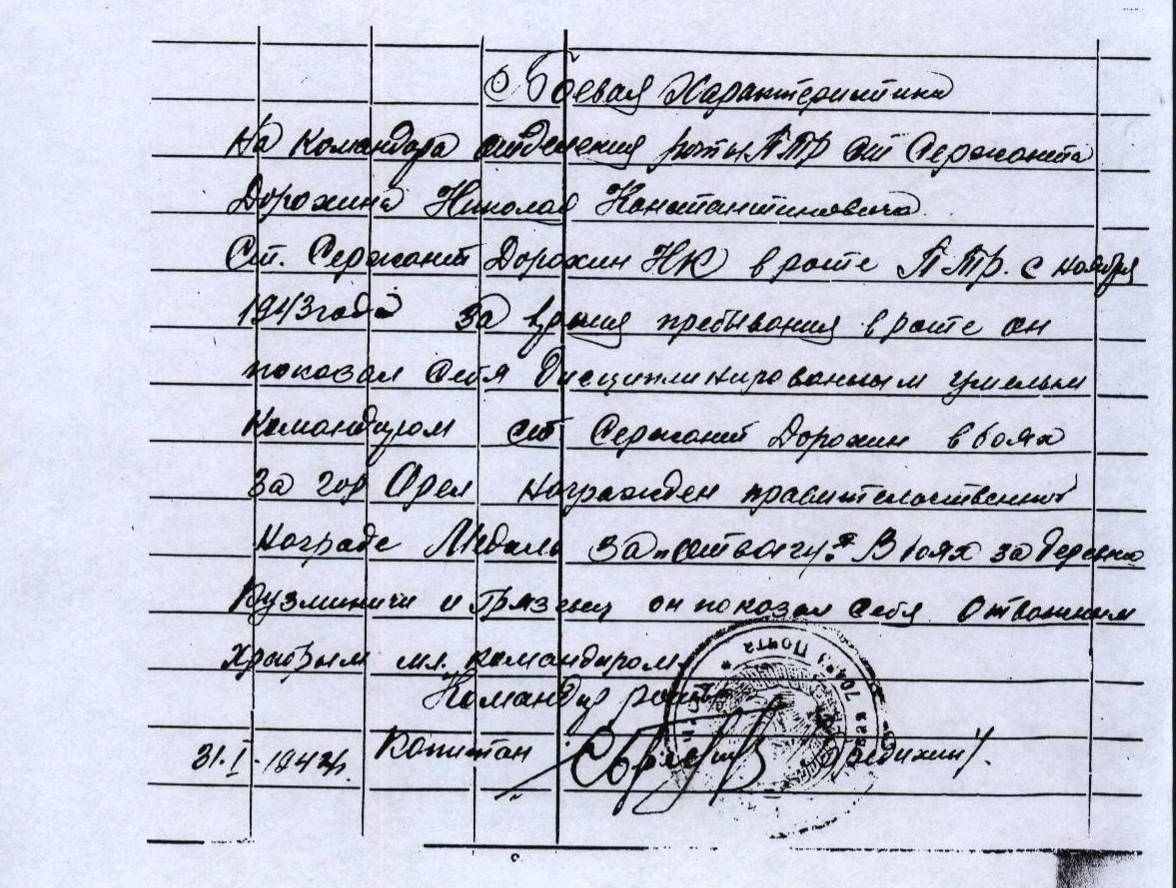 Боевая Характеристика
На Командора отделения роты ПТР ст Сержанта
Дорохина Николая Константиновича
Ст. Сержант Дорохин НК в роте ПТР. с ноября
1943 года за время пребывания в роте он
показал себя дисциплинированным умелым
Командиром ст Сержант Дорохин в боях
за гор Орел награжден правительственной
награде Медаль За "отвагу." В боях за деревни
Кузминичи и Грязенец он показал себя Отважным
Храбрым мл. командиром.
Командир роты
31.I.1944г. Капитан
Почта